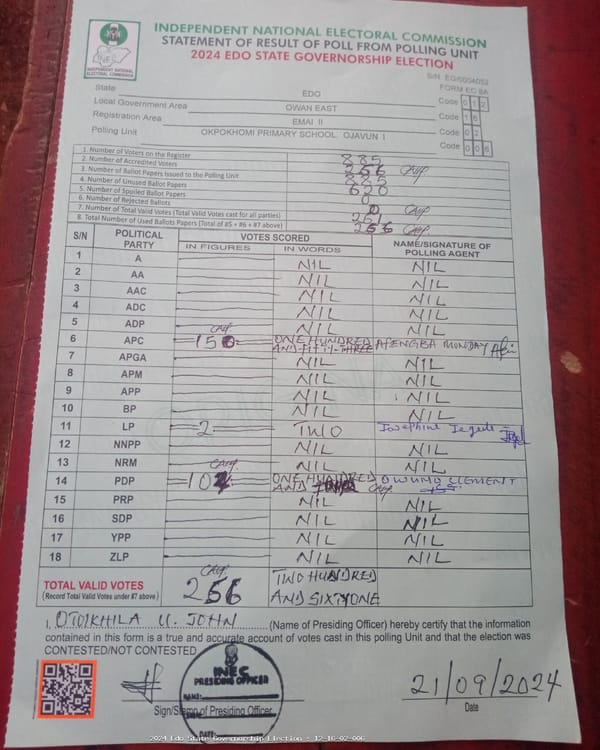 INDEPENDENT NATIONAL ELECTORAL COMMISSION
STATEMENT OF RESULT OF POLL FROM POLLING UNIT
2024 EDO STATE GOVERNORSHIP ELECTION
INEC
INDEPENDENT NATIONAL
ELECTORAL COMMISSION
FORM EC 8A
State EDO Code 012
Local Government Area OWAN EAST Code 16
Registration Area EMAI II Code 02
Polling Unit OKPOKHOMI PRIMARY SCHOOL, OJAVUN I Code 006
1. Number of Voters on the Register 885
2. Number of Accredited Voters 256
3. Number of Ballot Papers Issued to the Polling Unit 885
4. Number of Unused Ballot Papers 620
5. Number of Spoiled Ballot Papers 0
6. Number of Rejected Ballots
7. Number of Total Valid Votes (Total Valid Votes cast for all parties)
8. Total Number of Used Ballots Papers (Total of #5 + #6 + #7 above) 256
S/N POLITICAL PARTY VOTES SCORED NAME/SIGNATURE OF POLLING AGENT
IN FIGURES IN WORDS
1 A NIL NIL
2 AA NIL NIL
3 AAC NIL NIL
4 ADC NIL NIL
5 ADP NIL NIL
6 APC ONE HUNDRED AND FIFTY THREE AFENGBA MONDAY
7 APGA NIL NIL
8 APM NIL NIL
9 APP NIL NIL
10 BP NIL NIL
11 LP 2 TWO Josephine
12 NNPP NIL NIL
13 NRM NIL NIL
14 PDP ONE HUNDRED AND OWUND CLEMENT
15 PRP NIL NIL
16 SDP NIL NIL
17 YPP NIL NIL
18 ZLP NIL NIL
TOTAL VALID VOTES 256 TWO HUNDRED
(Record Total Valid Votes under #7 above) AND SIXTYONE
I, OTOIKHILA U. JOHN (Name of Presiding Officer) hereby certify that the information
contained in this form is a true and accurate account of votes cast in this polling Unit and that the election was
CONTESTED/NOT CONTESTED
INEC
PRESIDING OFFICER
NAME:
SIGN:
DATE:
Sign/Stamp of Presiding Officer
21/09/2024
Date
2024 Edo State Governorship Election - 12-16-02-006